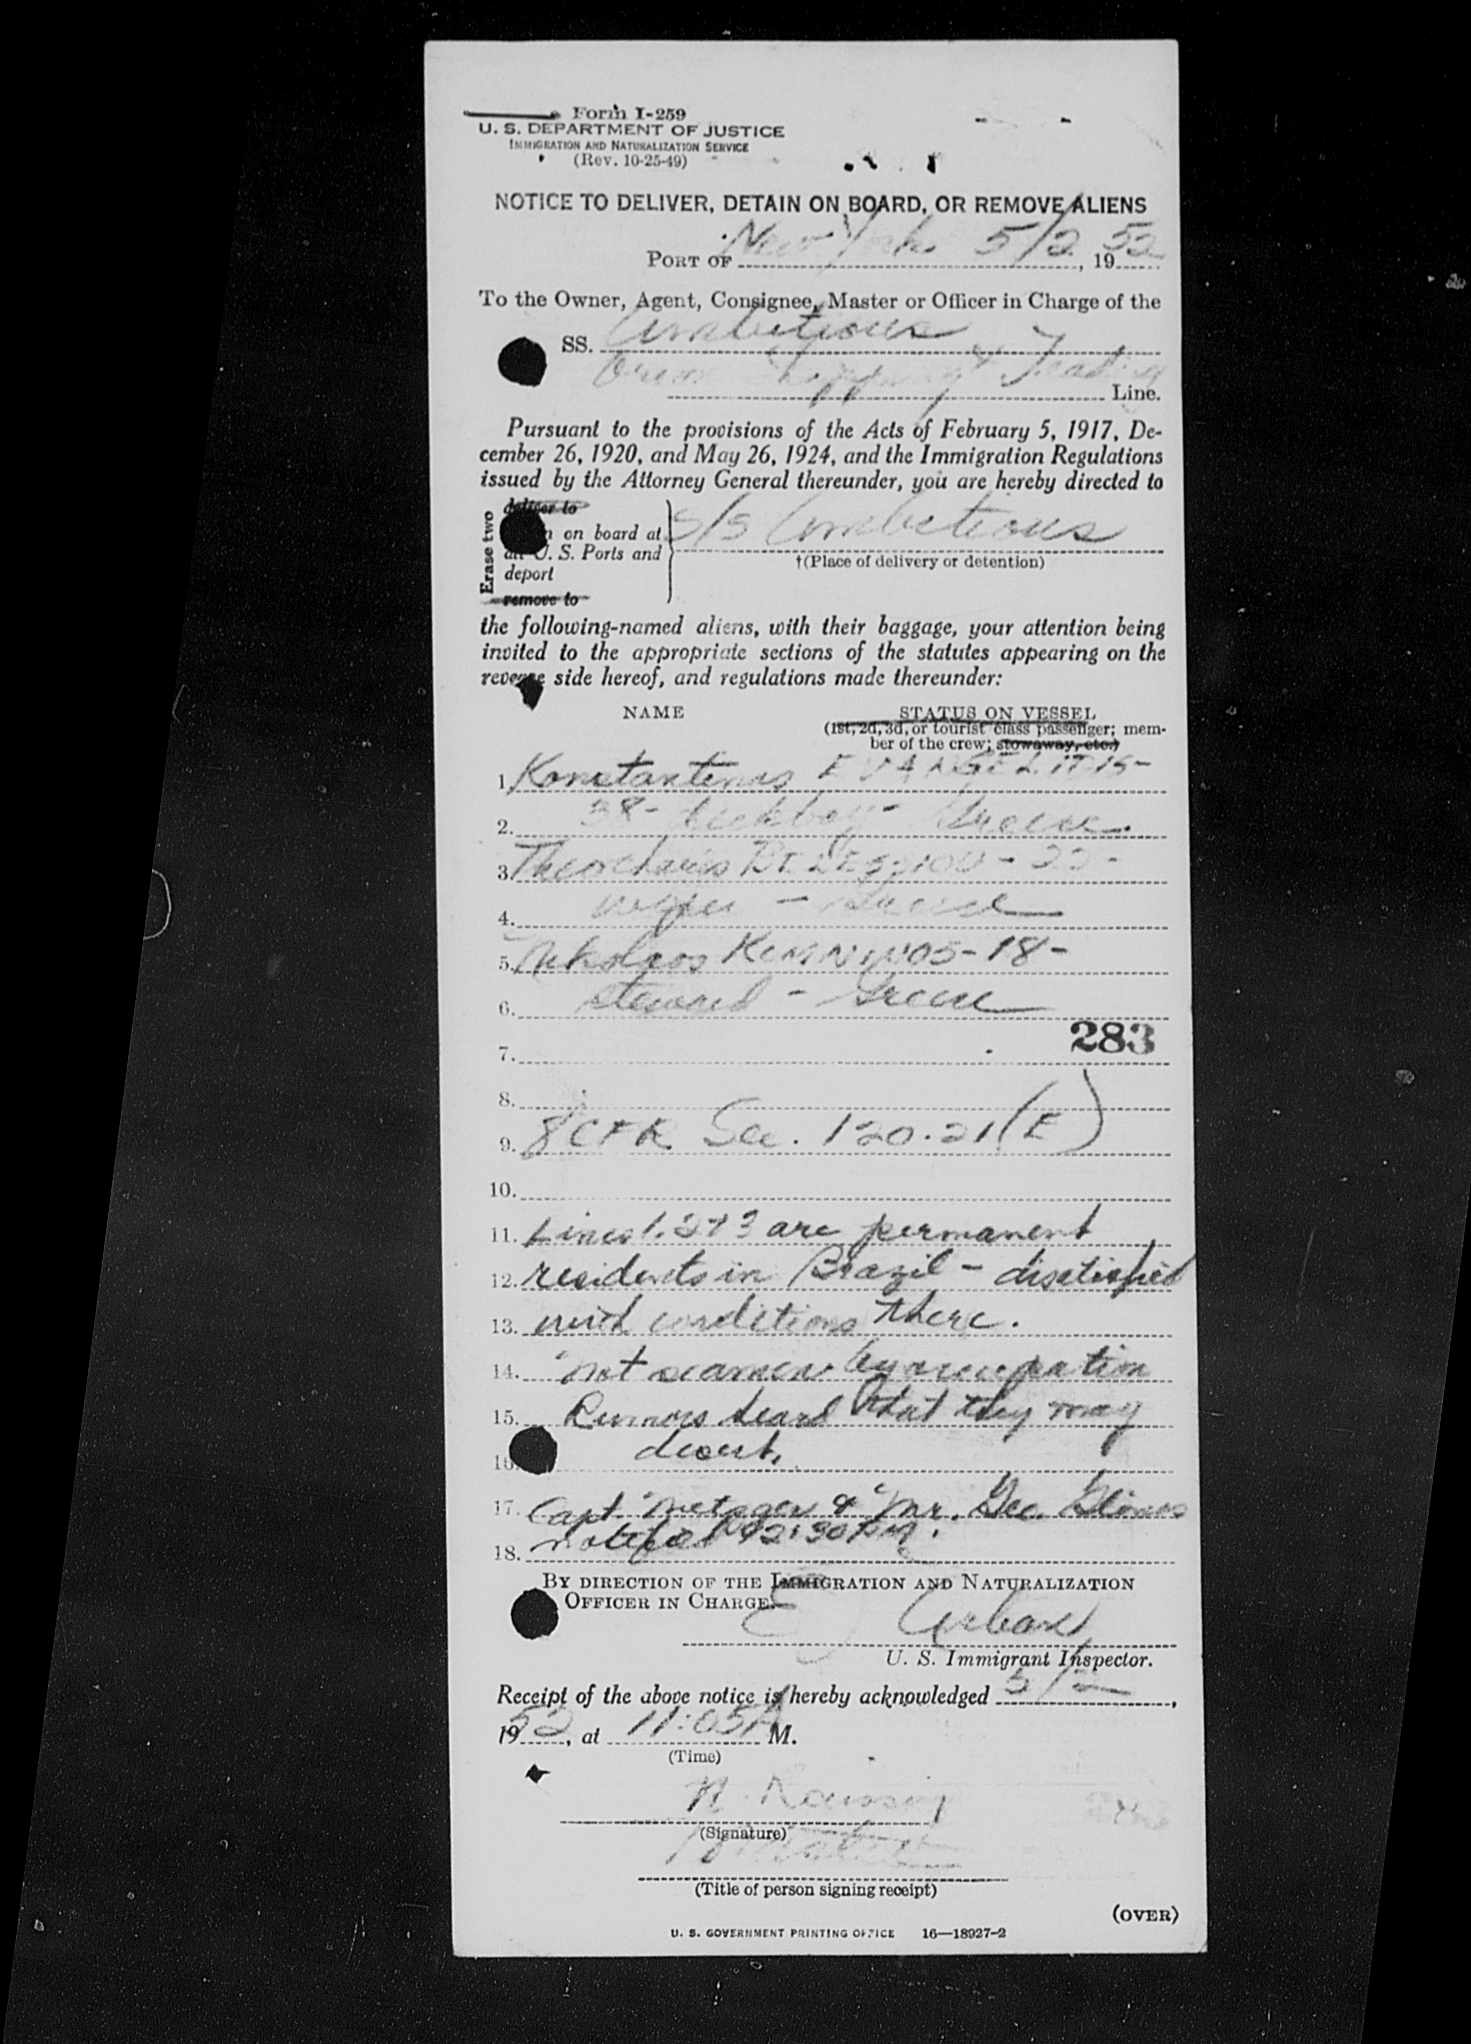 Form I-259
U. S. DEPARTMENT OF JUSTICE
IMMIGRATION AND NATURALIZATION SERVICE
(Rev. 10-25-49)
NOTICE TO DELIVER, DETAIN ON BOARD, OR REMOVE ALIENS
PORT OF New York 5/2, 1952
To the Owner, Agent, Consignee, Master or Officer in Charge of the
SS. Ambitious
Shipping & Trading
Line.
Pursuant to the provisions of the Acts of February 5, 1917, De-
cember 26, 1920, and May 26, 1924, and the Immigration Regulations
issued by the Attorney General thereunder, you are hereby directed to
Erase two
deliver to
on board at
all U. S. Ports and
deport
remove to
S/S Ambitious
†(Place of delivery or detention)
the following-named aliens, with their baggage, your attention being
invited to the appropriate sections of the statutes appearing on the
reverse side hereof, and regulations made thereunder:
NAME STATUS ON VESSEL
(1st, 2d, 3d, or tourist class passenger; mem-
ber of the crew; stowaway, etc.)
1. Konstantinos
2. 38- deckboy - Greece
3. Theocharis - 22-
4. wiper - Greece
5. Nikolaos - 18 -
6. steward - Greece
283
7.
8.
9. 8 CFR Sec. 120.21 (E)
10.
11. Lines 1. 2 + 3 are permanent
12. residents in Brazil - disatisfied
13. with conditions there.
14. not seamen by occupation
15. Rumors heard that they may
16. desert.
17. Capt. Metager & Mr. Geo.
18. notified 12:30 P.M.
BY DIRECTION OF THE IMMIGRATION AND NATURALIZATION
OFFICER IN CHARGE.
E Urban
U. S. Immigrant Inspector.
Receipt of the above notice is hereby acknowledged 5/2,
1952, at 11:05 A M.
(Time)
N.
(Signature)
(Title of person signing receipt)
(OVER)
U. S. GOVERNMENT PRINTING OFFICE 16—18927-2